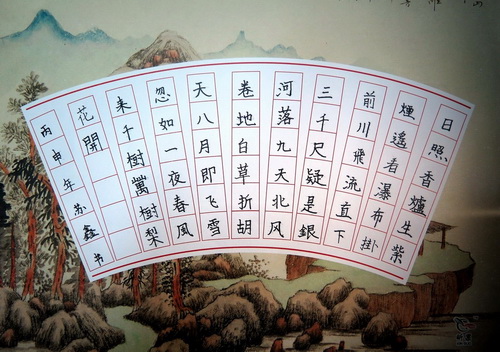 日照香爐生紫
煙遙看瀑布掛
前川飛流直下
三千尺疑是銀
河落九天北風
卷地白草折胡
天八月即飞雪
忽如一夜春風
来千樹萬樹梨
花開
丙申年苏鑫书